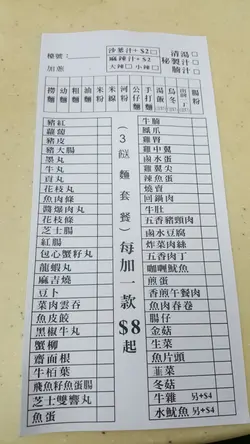 檯號:
加蔥
沙爹汁+$2□
麻辣汁+$2
大辣□小辣□
清湯□
秘製汁□
腩汁□
撈麵
幼麵
粗麵
油麵
米粉
米線
河粉
公仔麵
手打麵
湯飯
烏冬
腸粉
(3餸麵套餐)每加一款$8起
豬紅
蘿蔔
豬皮
豬大腸
墨丸
牛丸
貢丸
花枝丸
魚肉條
醬爆肉丸
花枝條
芝士腸
紅腸
包心蟹籽丸
龍蝦丸
麻吉燒
豆卜
菜肉雲吞
魚皮餃
黑椒牛丸
蟹柳
齋面根
牛栢葉
飛魚籽魚蛋腸
芝士雙響丸
魚蛋
牛腩
鳳爪
雞腎
雞中翼
雞尖
鹵水蛋
辣魚蛋
燒賣
回鍋肉
牛肚
五香豬頸肉
鹵水豆腐
炸菜肉絲
五香肉丁
咖喱魷魚
煎蛋
香煎午餐肉
魚肉春卷
腸仔
金菇
生菜
魚片頭
韮菜
冬菇
牛雜 另+$4
水魷魚 另+$4